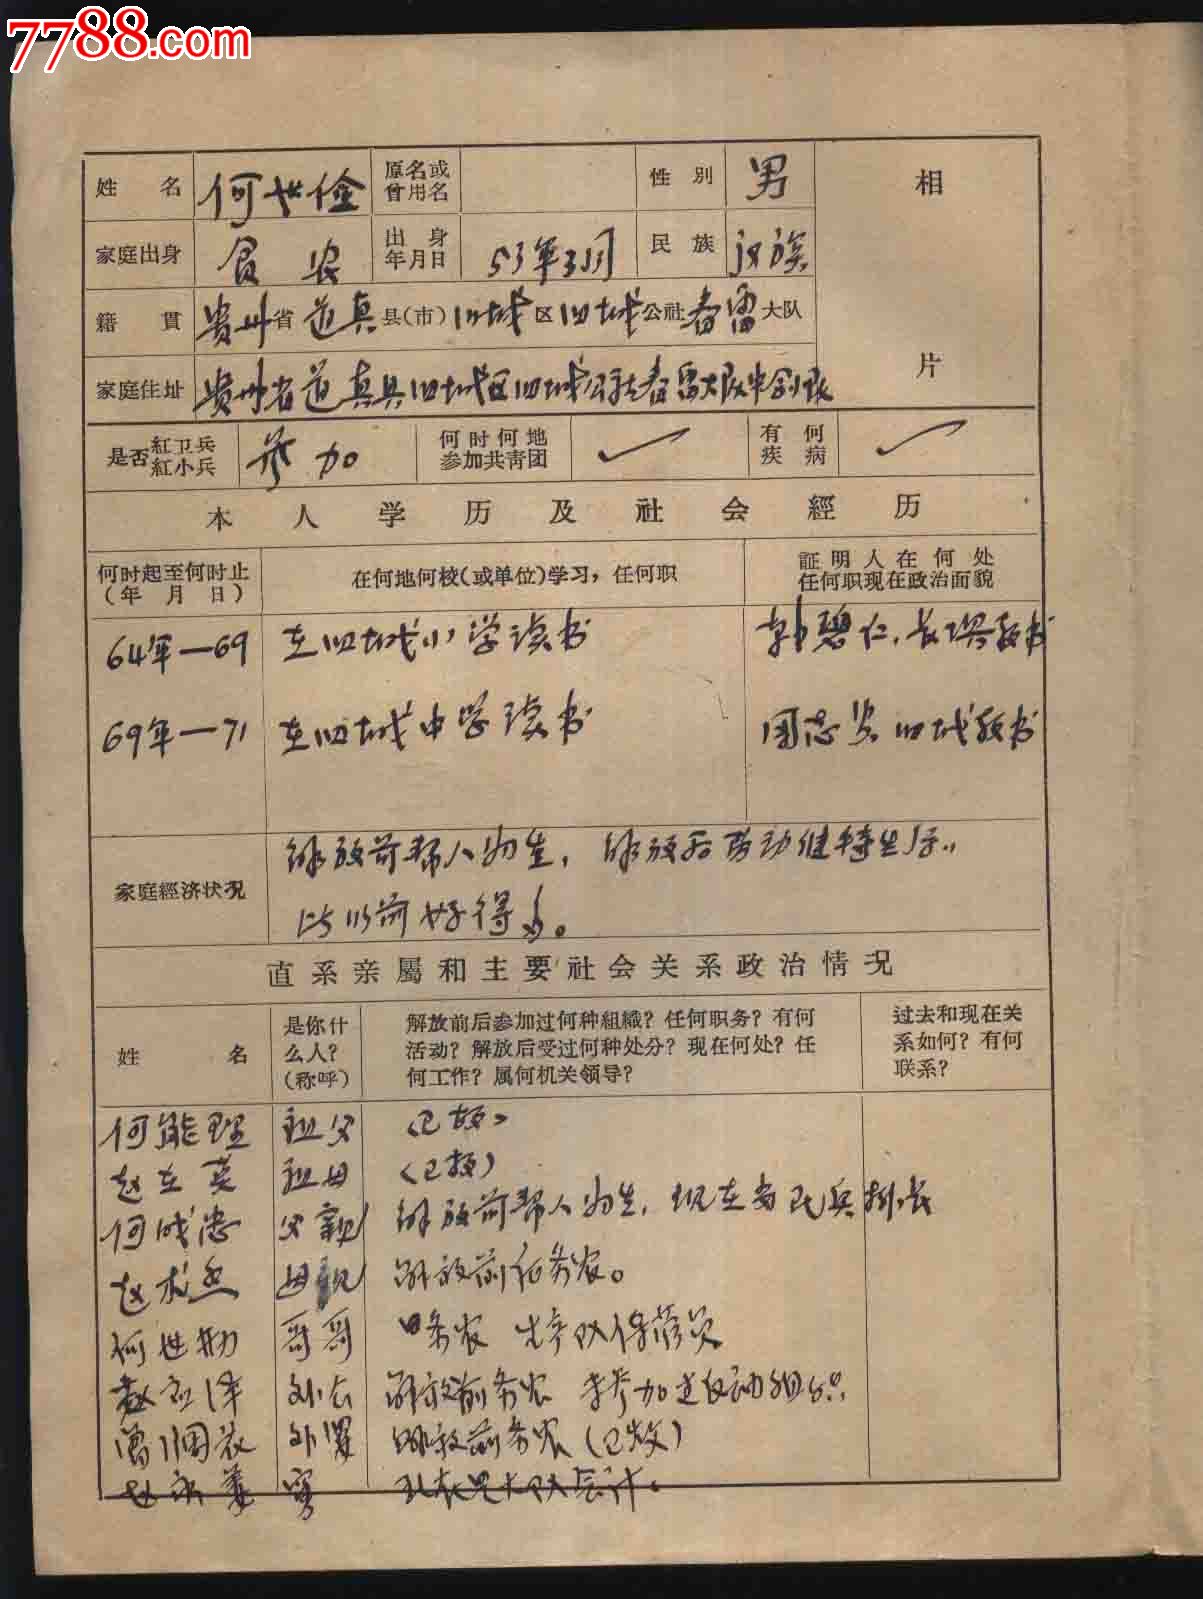 7788.com
姓名 何世俭 原名或曾用名 性别 男 相片
家庭出身 贫农 出身年月日 53年3月 民族 汉族
籍貫 贵州省道真县(市)旧城区旧城公社春雷大队
家庭住址 贵州省道真县旧城区旧城公社春雷大队中剑队
是否紅卫兵紅小兵 参加 何时何地参加共青团 ✓ 有何疾病 ✓
本人学历及社会經历
何时起至何时止(年月日) 在何地何校(或单位)学习，任何职 証明人在何处任何职现在政治面貌
64年—69 在旧城小学读书 韩碧仁
69年—71 在旧城中学读书 旧城教书
家庭經济状况 解放前帮人为生，解放后劳动维持生活，
比以前好得多。
直系亲屬和主要社会关系政治情况
姓名 是你什么人？(称呼) 解放前后参加过何种組織？任何职务？有何活动？解放后受过何种处分？现在何处？任何工作？属何机关領导？ 过去和现在关系如何？有何联系？
何能理 祖父 (已故)
赵在英 祖母 (已故)
何成忠 父親 解放前帮人为生，现在当民兵排长
赵 母親 解放前后务农。
何世勋 哥哥 务农 生产队保管员
赵 泽 外公 解放前务农 未参加过反动组织
外婆 解放前务农(已故)
赵 现在是大队会计。